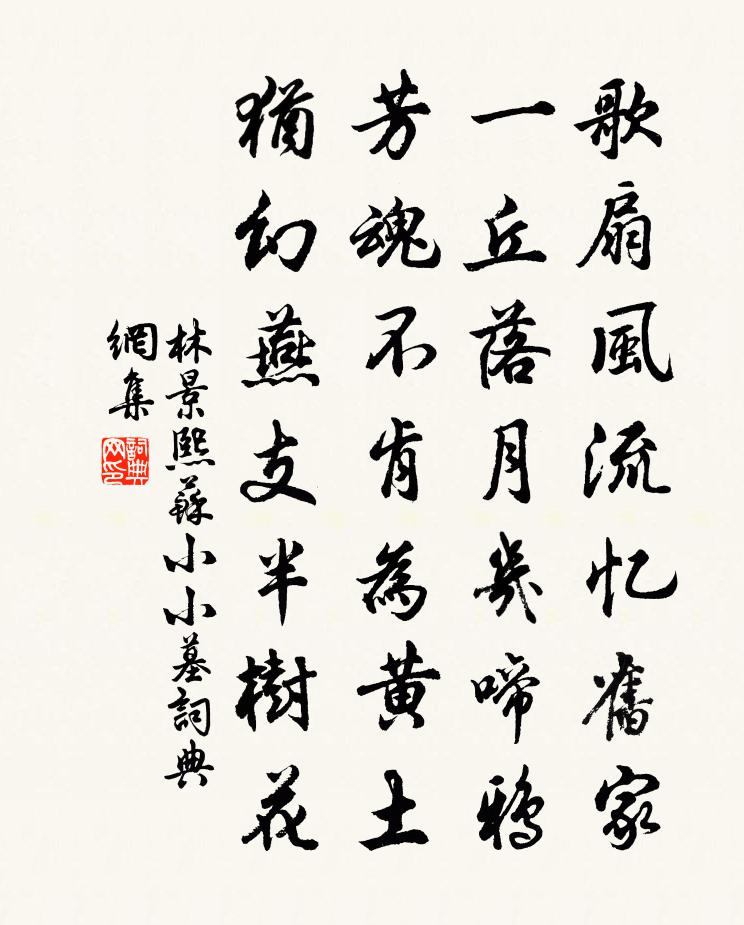 歌扇風流忆舊家
一丘落月幾啼鴉
芳魂不肯為黄土
猶幻燕支半樹花
林景熙蘇小小墓詞典
網集
詞典
网印